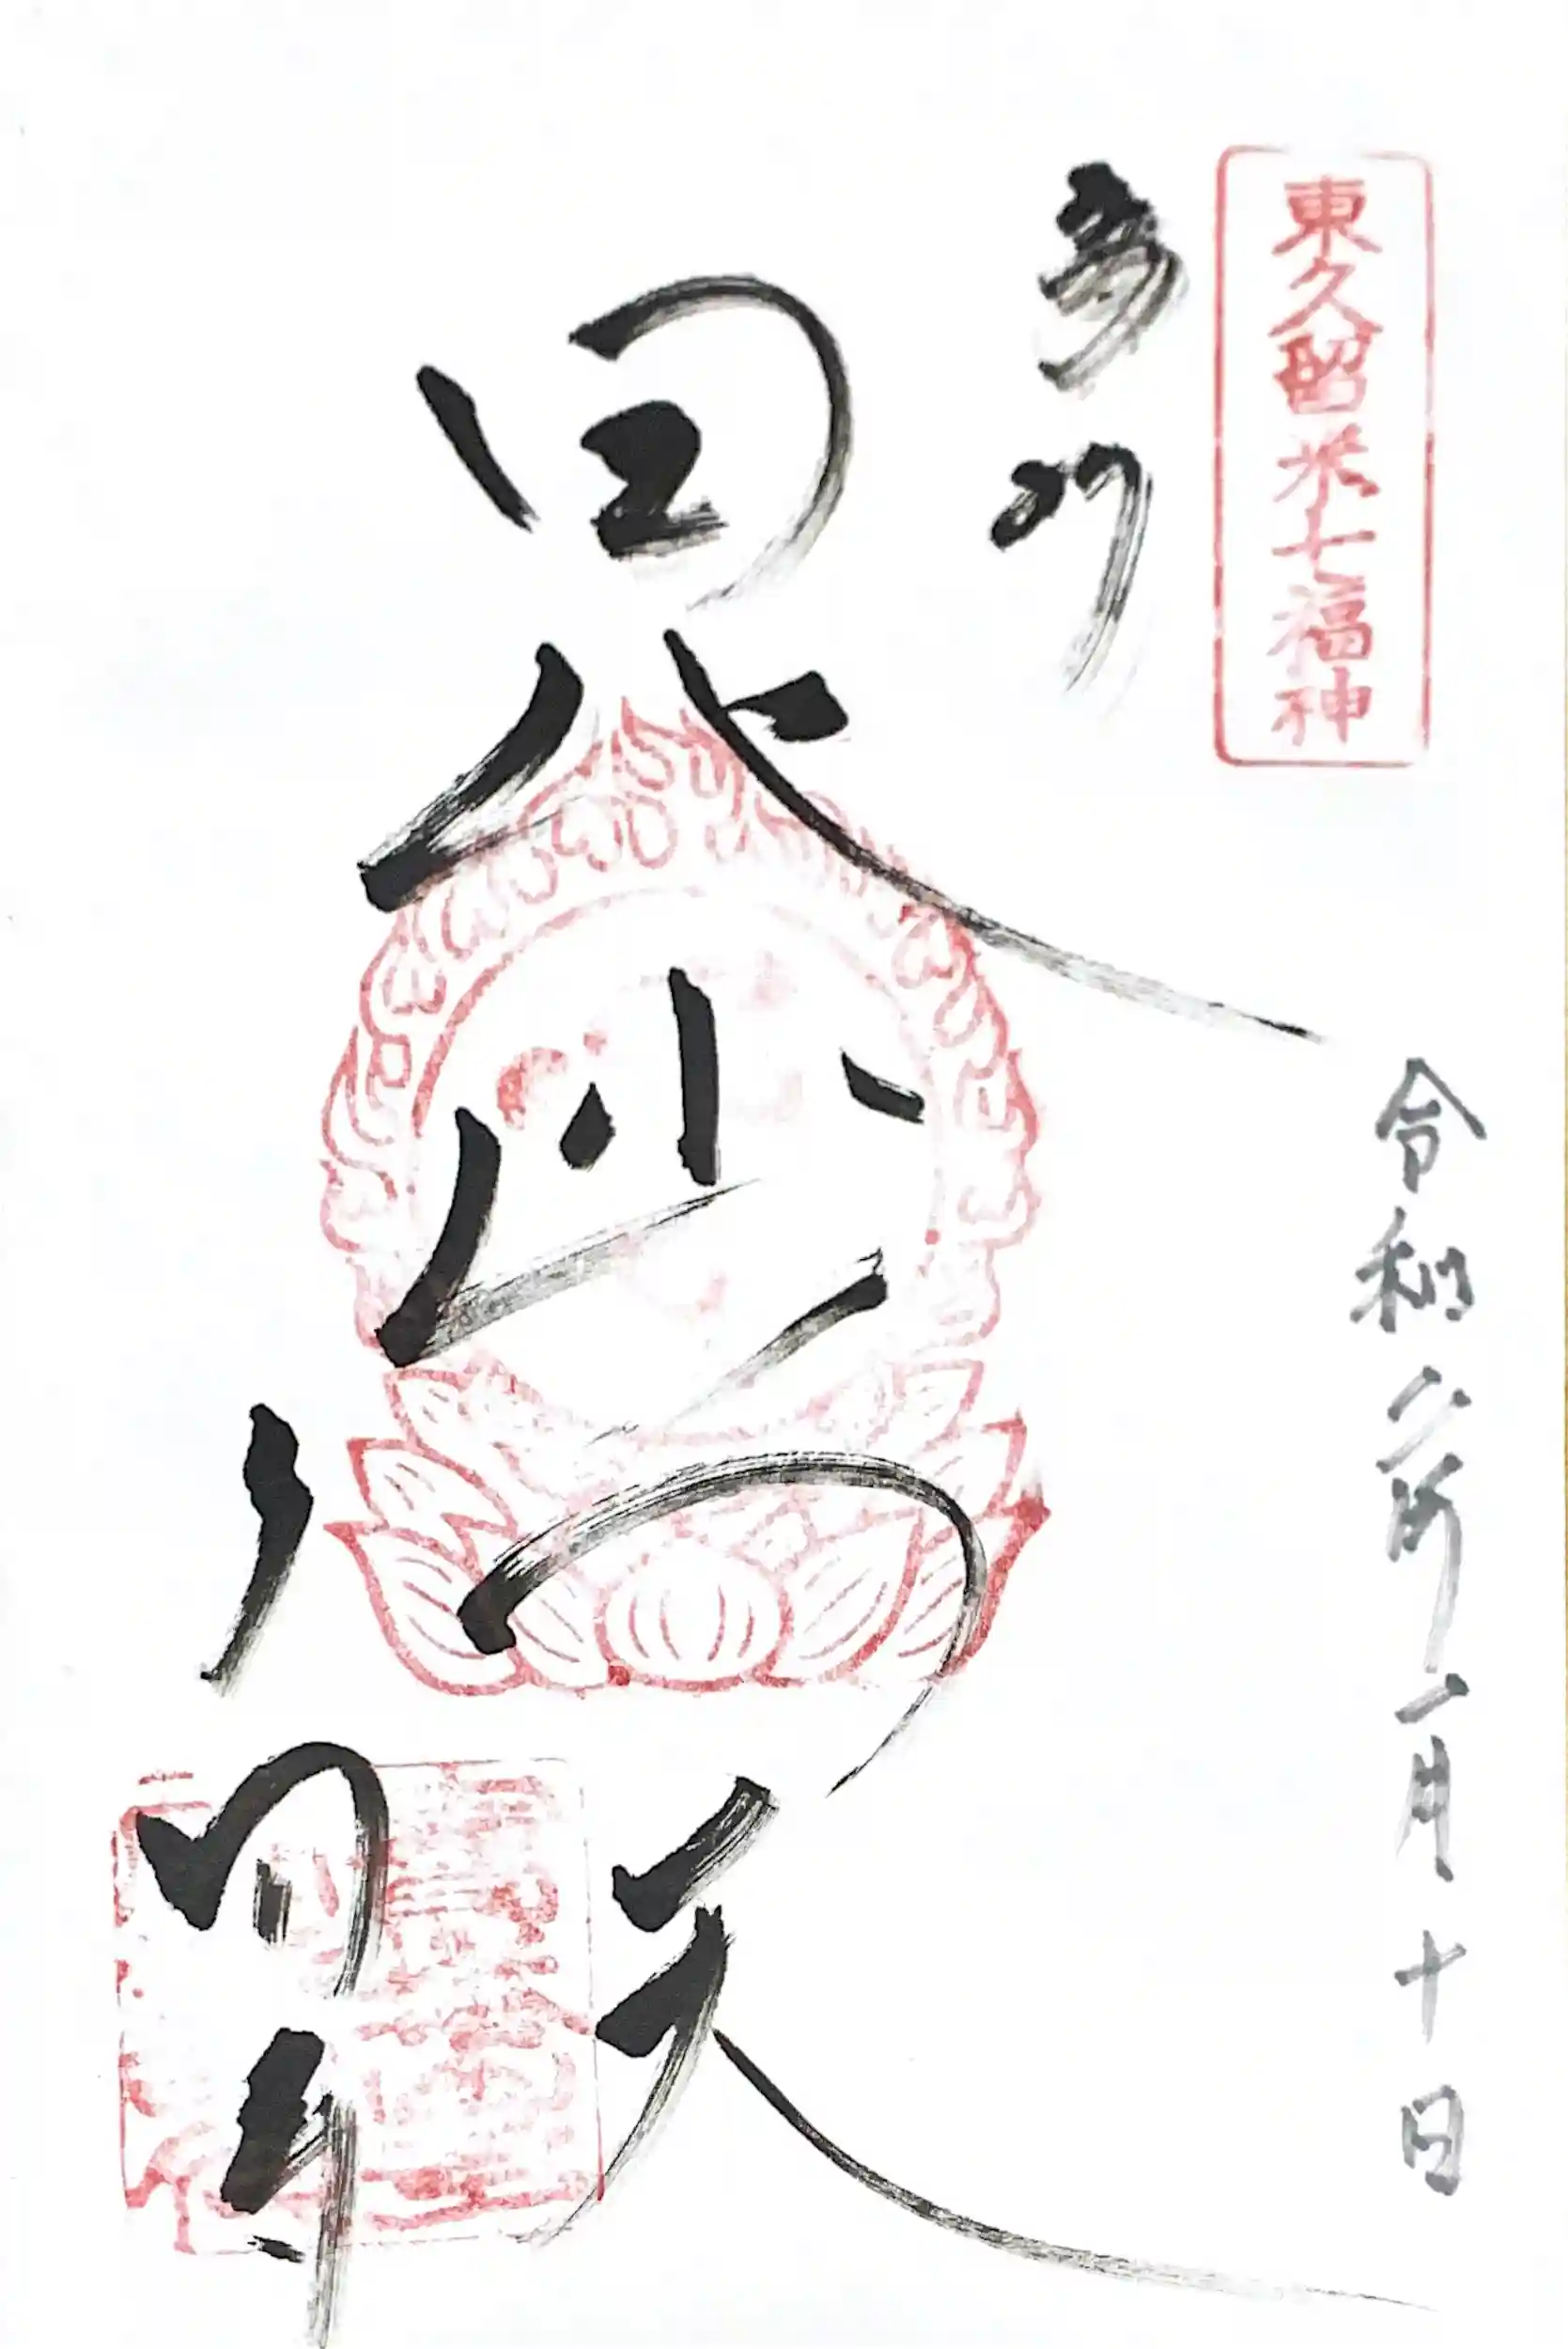 東久留米七福神
奉拝
令和六年一月十日
毘沙門天
多聞寺